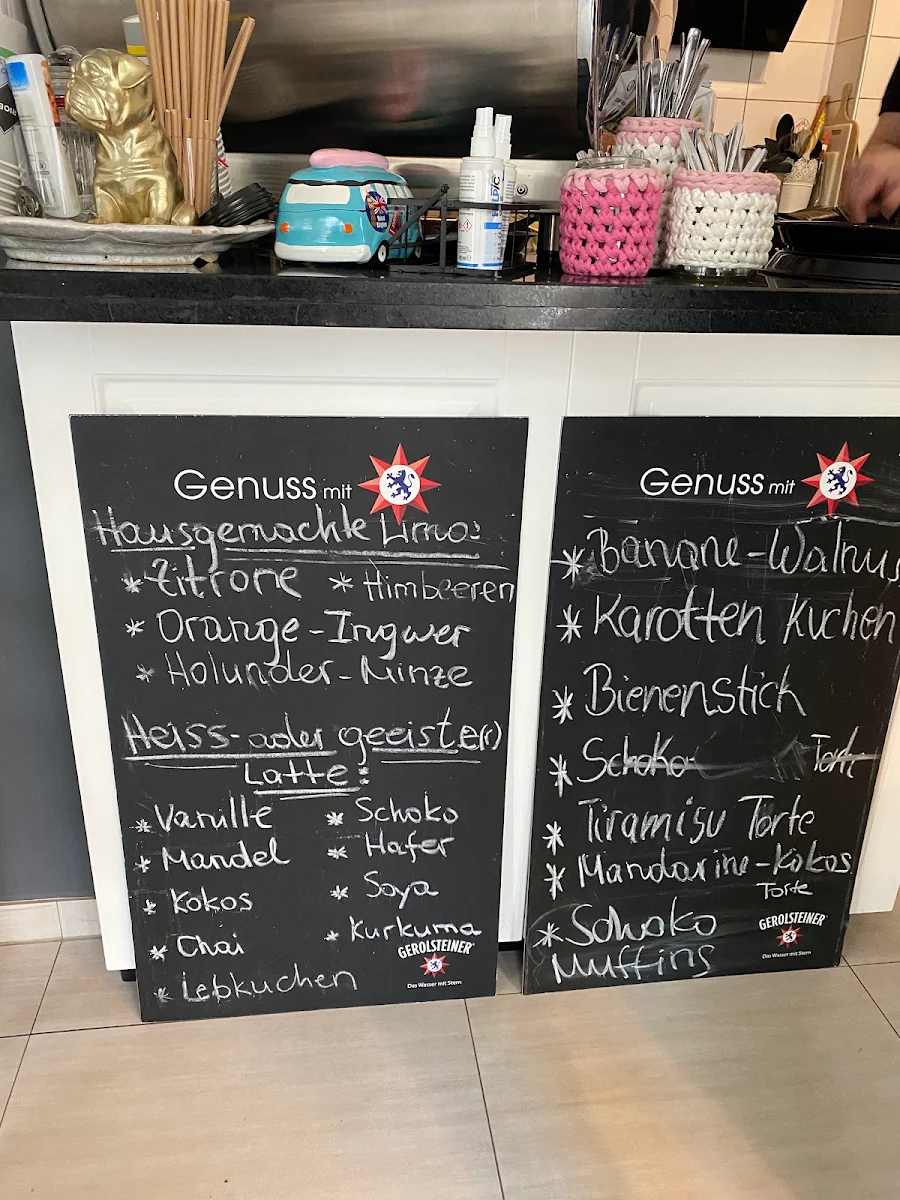 Genuss mit
Hausgemachte Limo:
* Zitrone * Himbeeren
* Orange-Ingwer
* Holunder-Minze
Heiss- oder geeiste(r)
Latte:
* Vanille * Schoko
* Mandel * Hafer
* Kokos * Soya
* Chai * Kurkuma
* Lebkuchen
GEROLSTEINER
Das Wasser mit Stern
Genuss mit
* Banane-Walnus
* Karotten Kuchen
* Bienenstick
* Schoko Torte
* Tiramisu Torte
* Mandarine-Kokos
Torte
* Schoko
Muffins
GEROLSTEINER
Das Wasser mit Stern